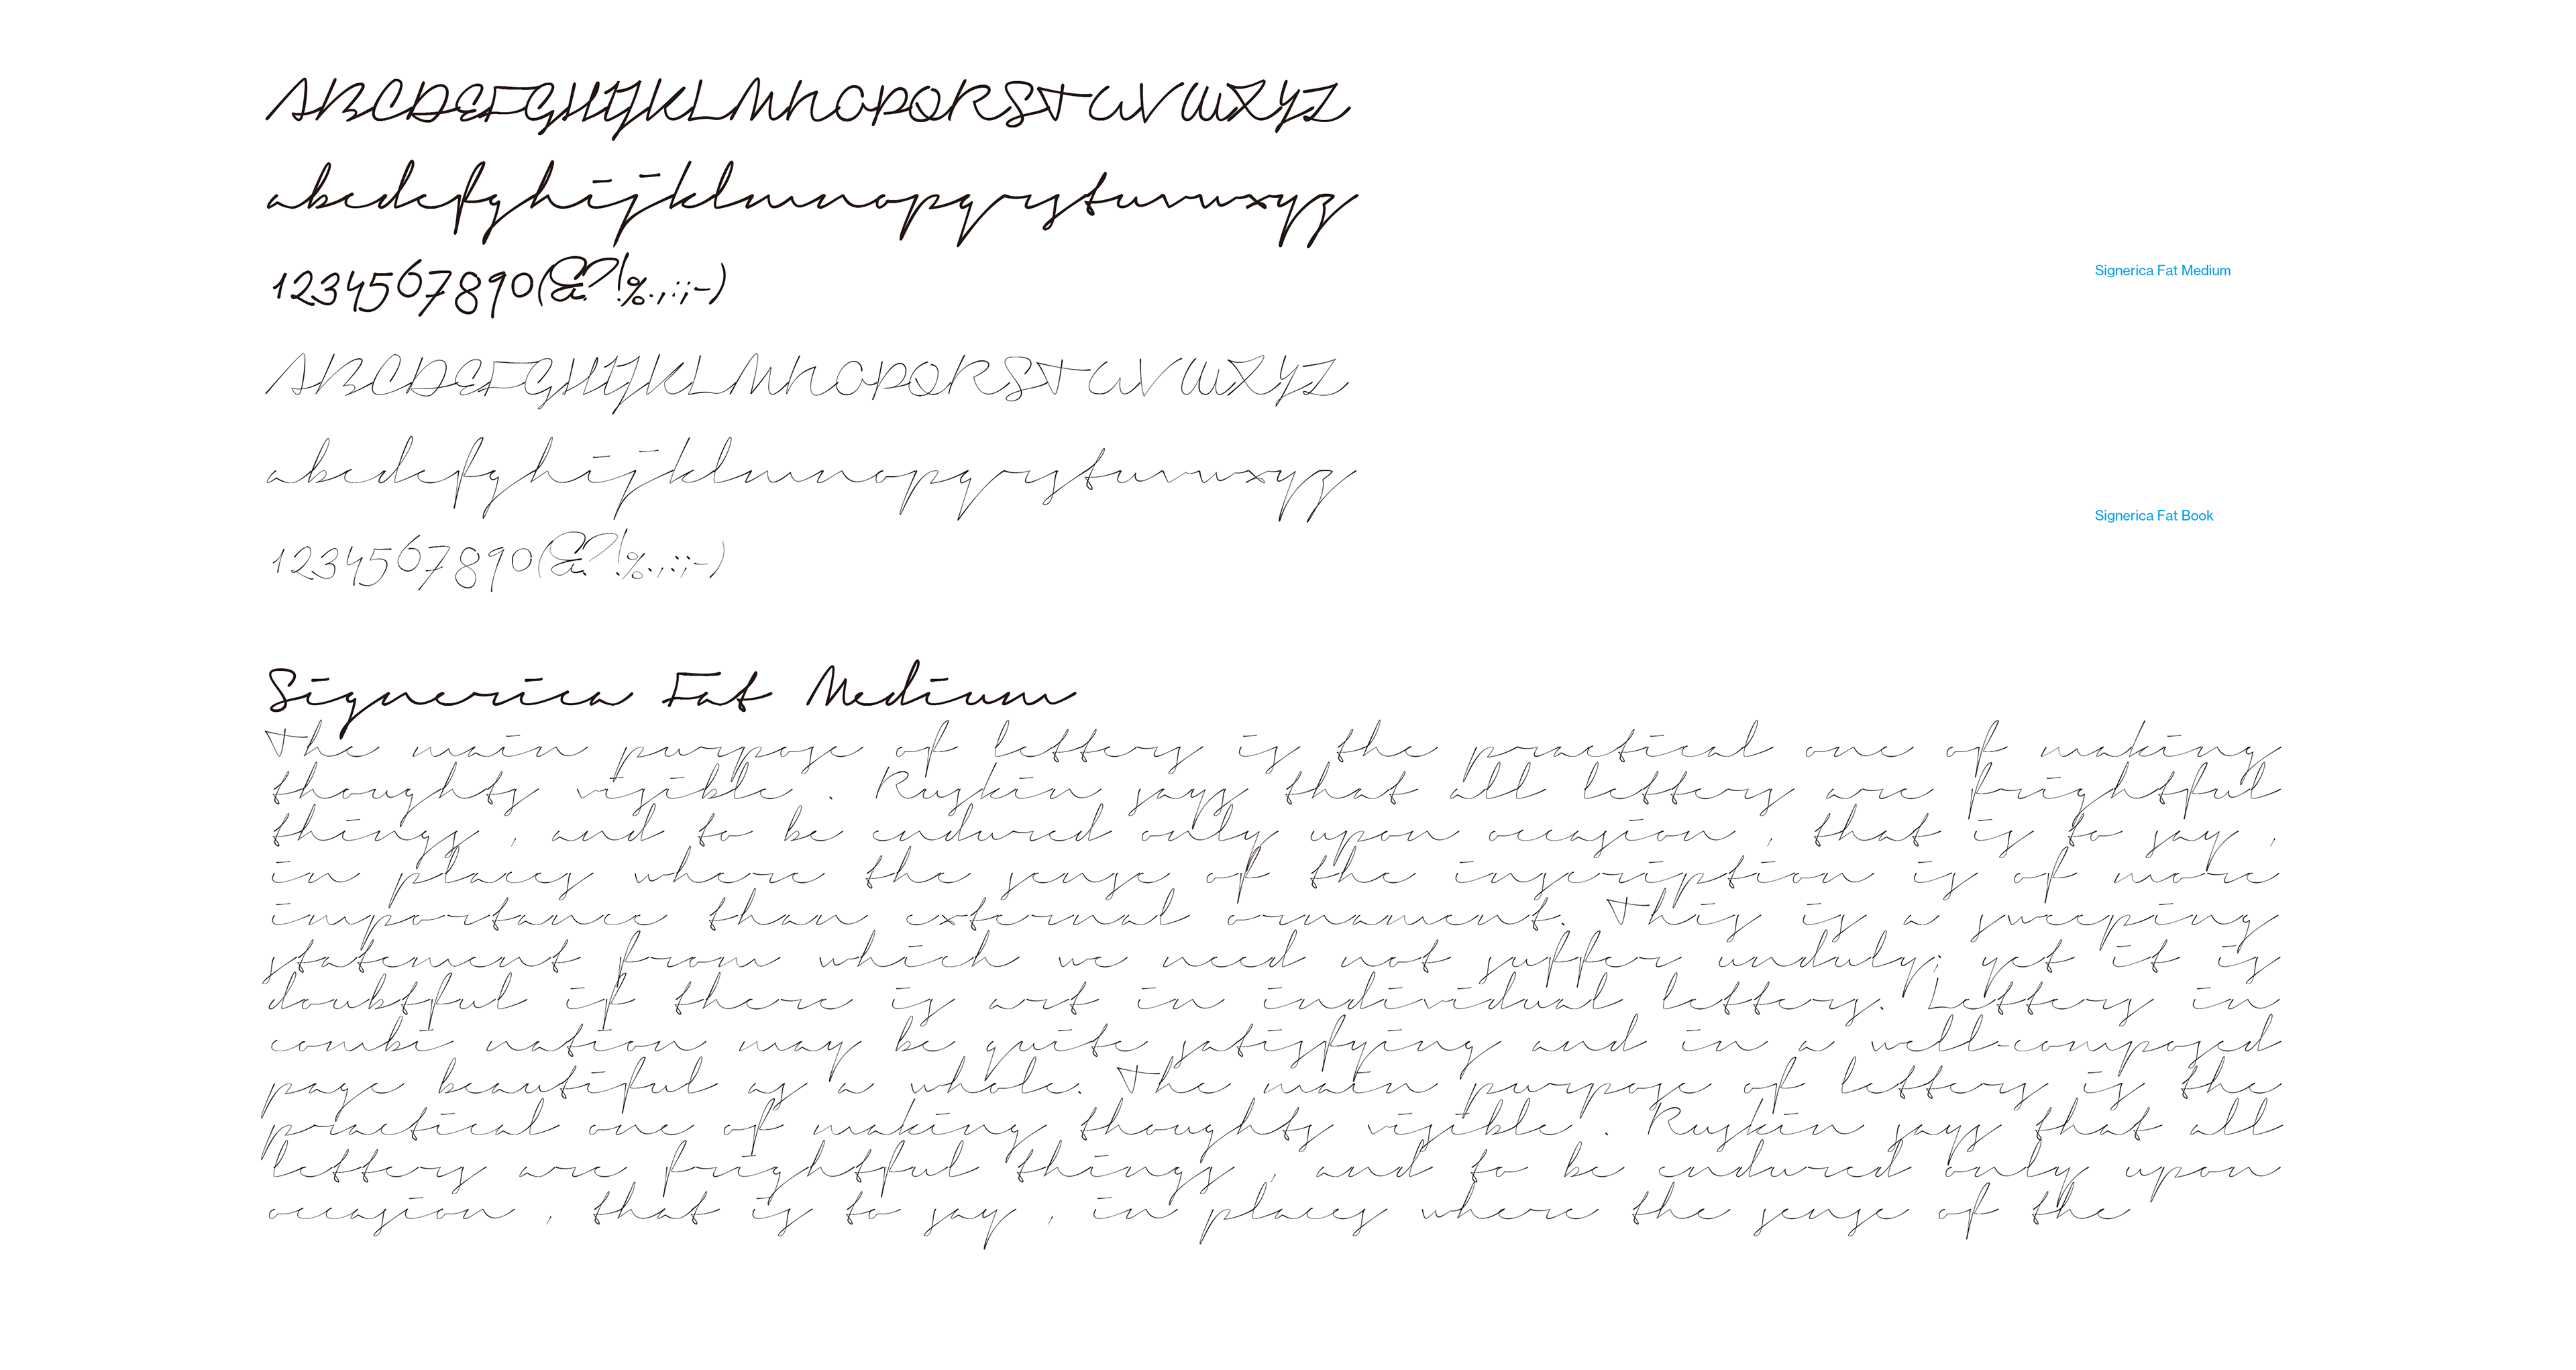 ABCDEFGHIJKLMNOPQRSTUVWXYZ
abcdefghijklmnopqrstuvwxyz
1234567890(&?!%.,:;-)
Signerica Fat Medium
ABCDEFGHIJKLMNOPQRSTUVWXYZ
abcdefghijklmnopqrstuvwxyz
Signerica Fat Book
1234567890(&?!%.,:;-)
Signerica Fat Medium
The main purpose of letters is the practical one of making
thoughts visible . Ruskin says that all letters are frightful
things , and to be endured only upon occasion , that is to say ,
in places where the sense of the inscription is of more
importance than external ornament. This is a sweeping
statement from which we need not suffer unduly; yet it is
doubtful if there is art in individual letters. Letters in
combi nation may be quite satisfying and in a well-composed
page beautiful as a whole. The main purpose of letters is the
practical one of making thoughts visible . Ruskin says that all
letters are frightful things , and to be endured only upon
occasion , that is to say , in places where the sense of the